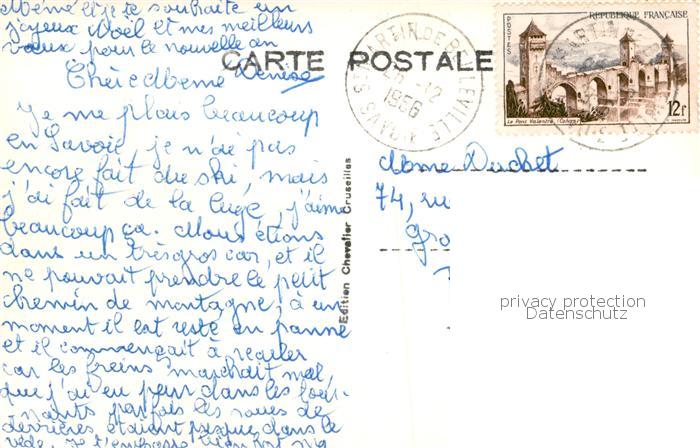 Mémé et je te souhaite un
joyeux Noël et mes meilleurs
vœux pour le nouvelle an
CARTE POSTALE
Chère Mémé Denise
Je me plais beaucoup
en Savoie, je n'ai pas
encore fait du ski, mais
j'ai fait de la luge, j'aime
beaucoup ça. Nous étions
dans un très gros car, et il
ne pouvait prendre le petit
chemin de montagne, à un
moment il est resté en panne
et il commençait à reculer
car les freins marchait mal,
que j'ai eu peur dans les tour-
nants parfois les roues de
derrières étaient presque dans le
vide. Je t'embrasse bien fort
Edition Chevalier Cruseilles
ST MARTIN DE BELLEVILLE
26-12
1956
SAVOIE
POSTES
REPUBLIQUE FRANÇAISE
Le Pont Valentré (Cahors)
12F
Mme Duchet
74, ru
Gro
privacy protection
Datenschutz